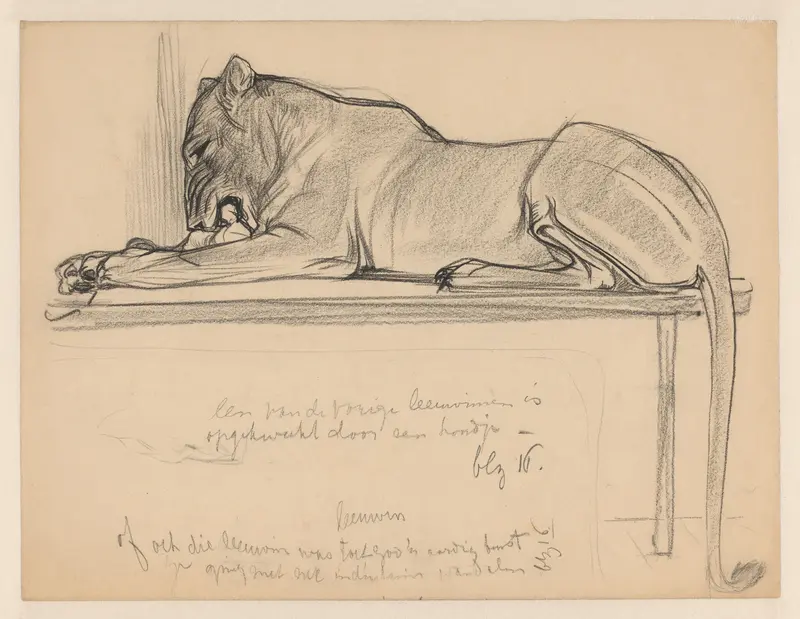 Een van de vorige leeuwinnen is
opgekweekt door een hondje —
blz 16.
leeuwin
of och die leeuwin was toch zoo'n aardig beest
je ging met
blz 16